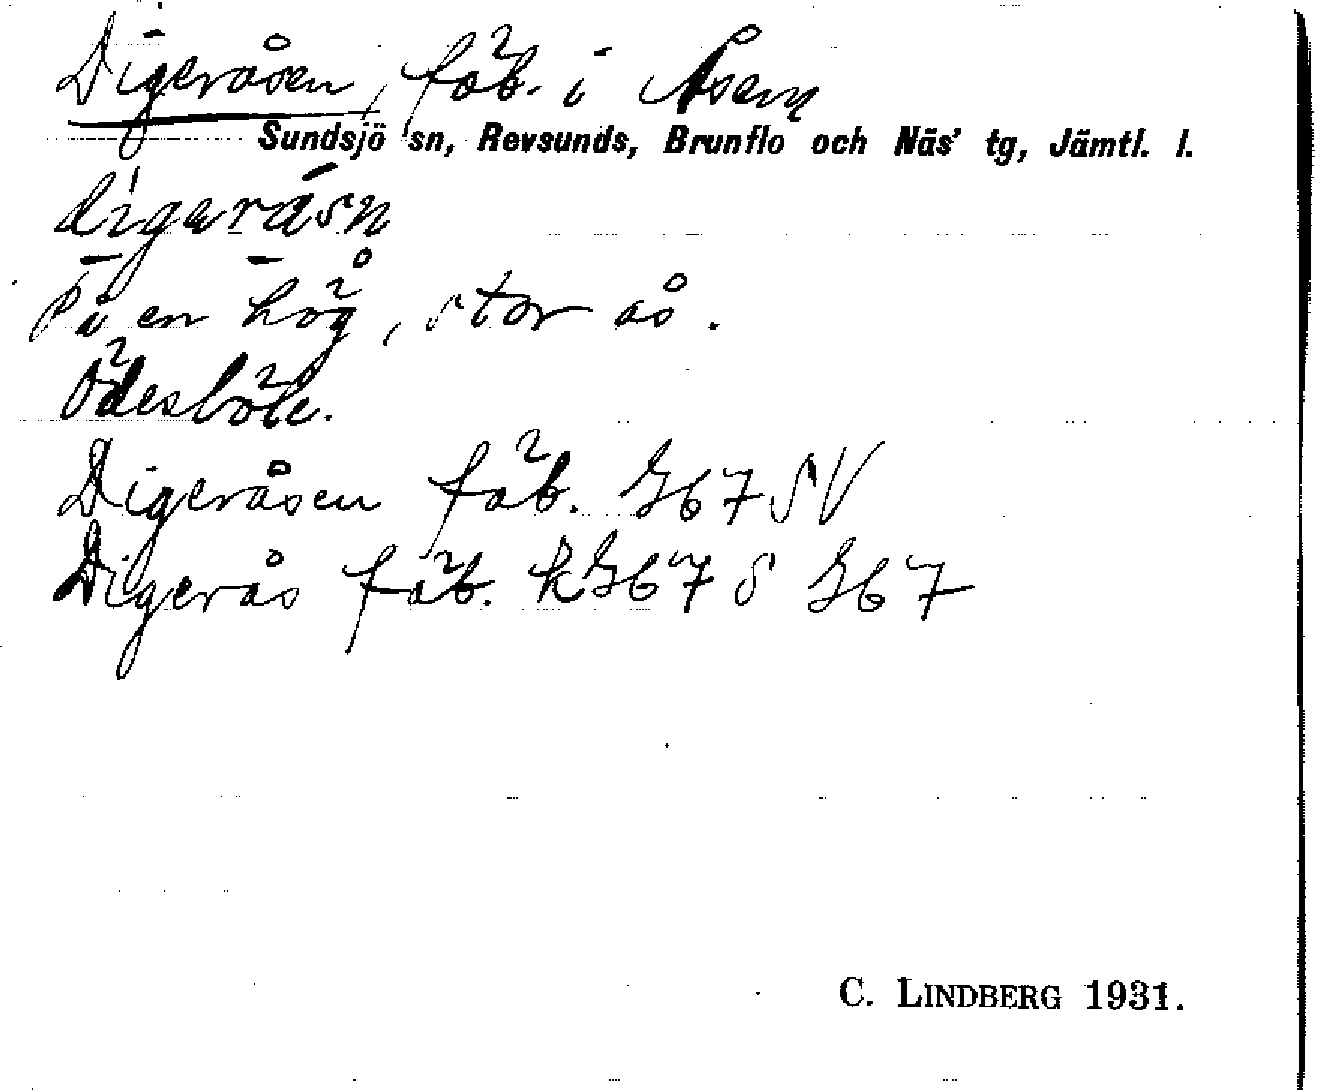 Digeråsen, fäb. i Åsem
Sundsjö sn, Revsunds, Brunflo och Näs' tg, Jämtl. l.
På en hög, stor ås.
Ödesböle.
Digeråsen fäb. G67 SV
Digerås fäb. kG67 S G67
C. LINDBERG 1931.